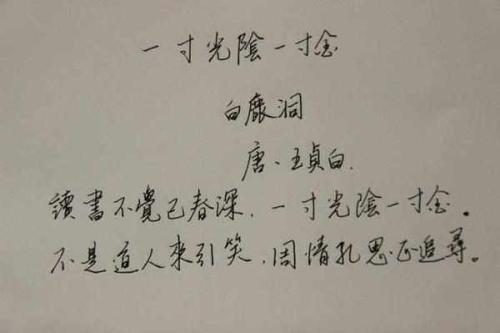 一寸光陰一寸金
白鹿洞
唐、王貞白.
讀書不覺已春深，一寸光陰一寸金。
不是道人來引笑，周情孔思正追尋。